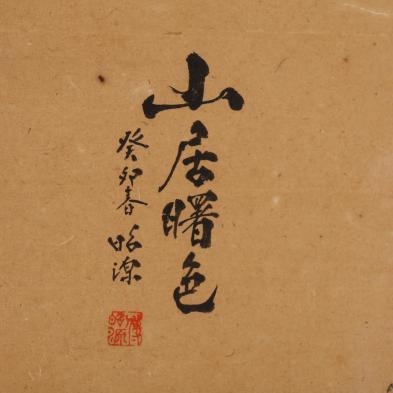 山居曙色
癸卯春 昭源